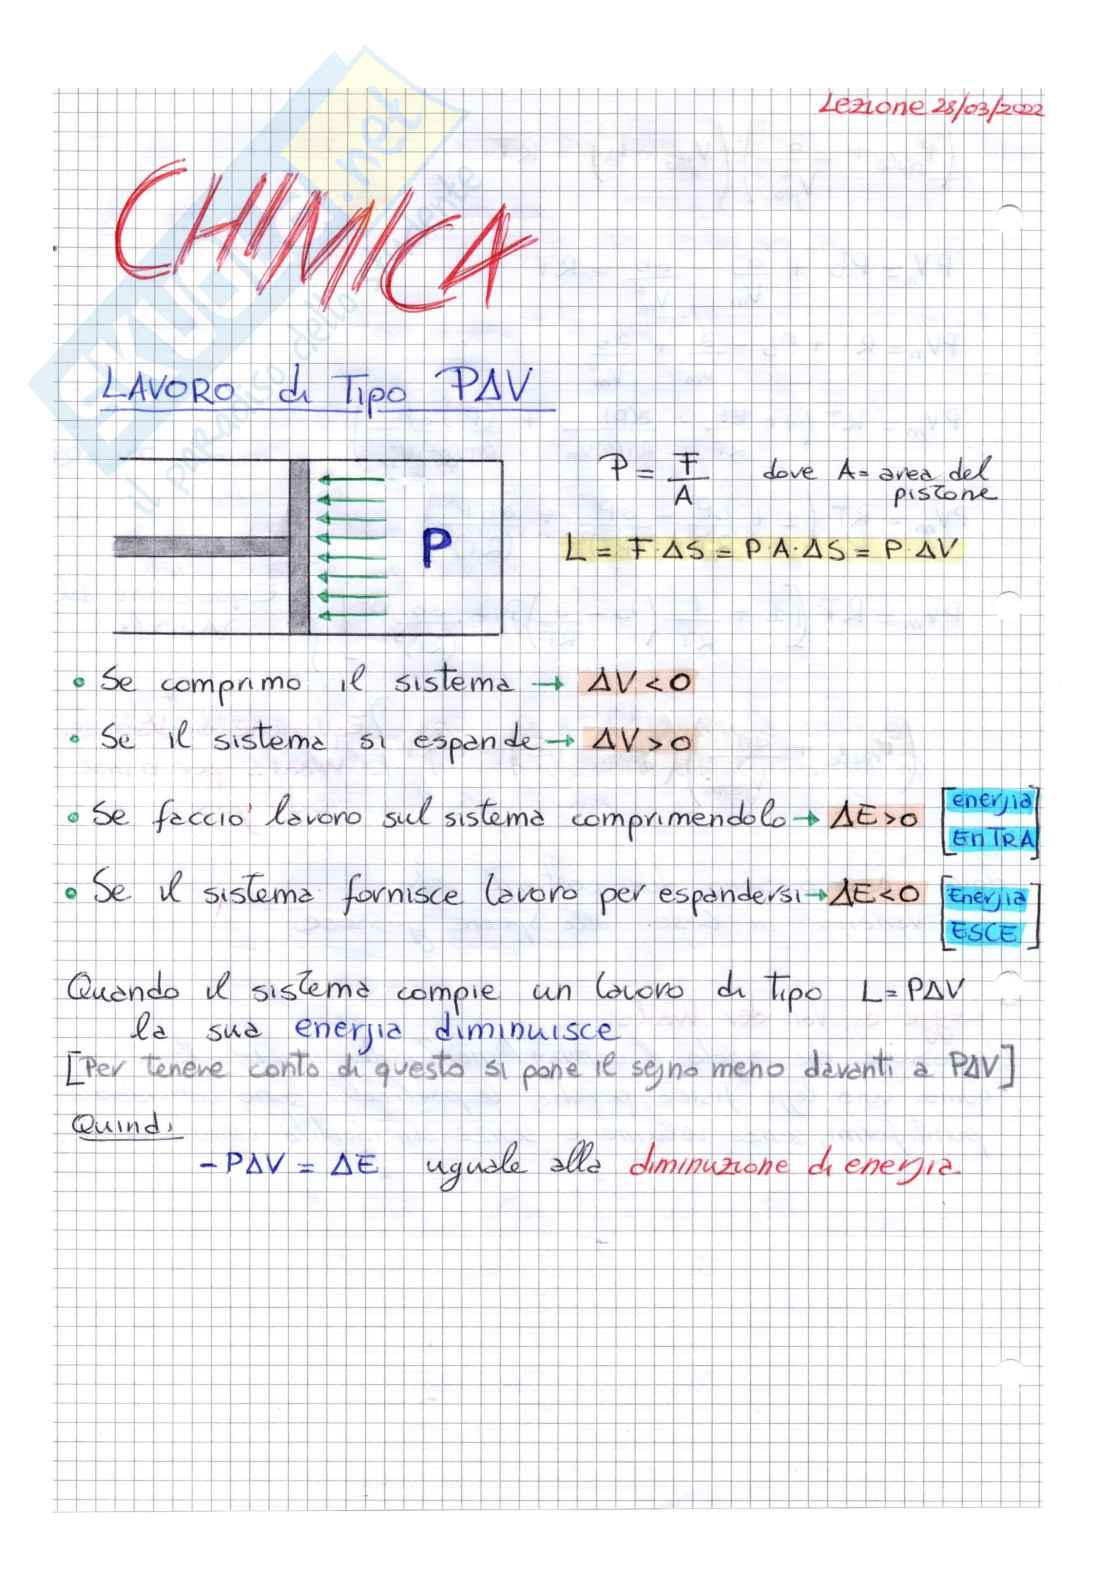 Lezione 28/03/2022
CHIMICA
LAVORO di Tipo PΔV
P = F/A dove A = area del pistone
P
L = F·ΔS = P A·ΔS = P·ΔV
• Se comprimo il sistema → ΔV < 0
• Se il sistema si espande → ΔV > 0
• Se faccio lavoro sul sistema comprimendolo → ΔE > 0 [energia ENTRA]
• Se il sistema fornisce lavoro per espandersi → ΔE < 0 [Energia ESCE]
Quando il sistema compie un lavoro di tipo L = PΔV
la sua energia diminuisce
[Per tenere conto di questo si pone il segno meno davanti a PΔV]
Quindi
-PΔV = ΔE uguale alla diminuzione di energia
SKUOLA.net
il paradiso dello studente